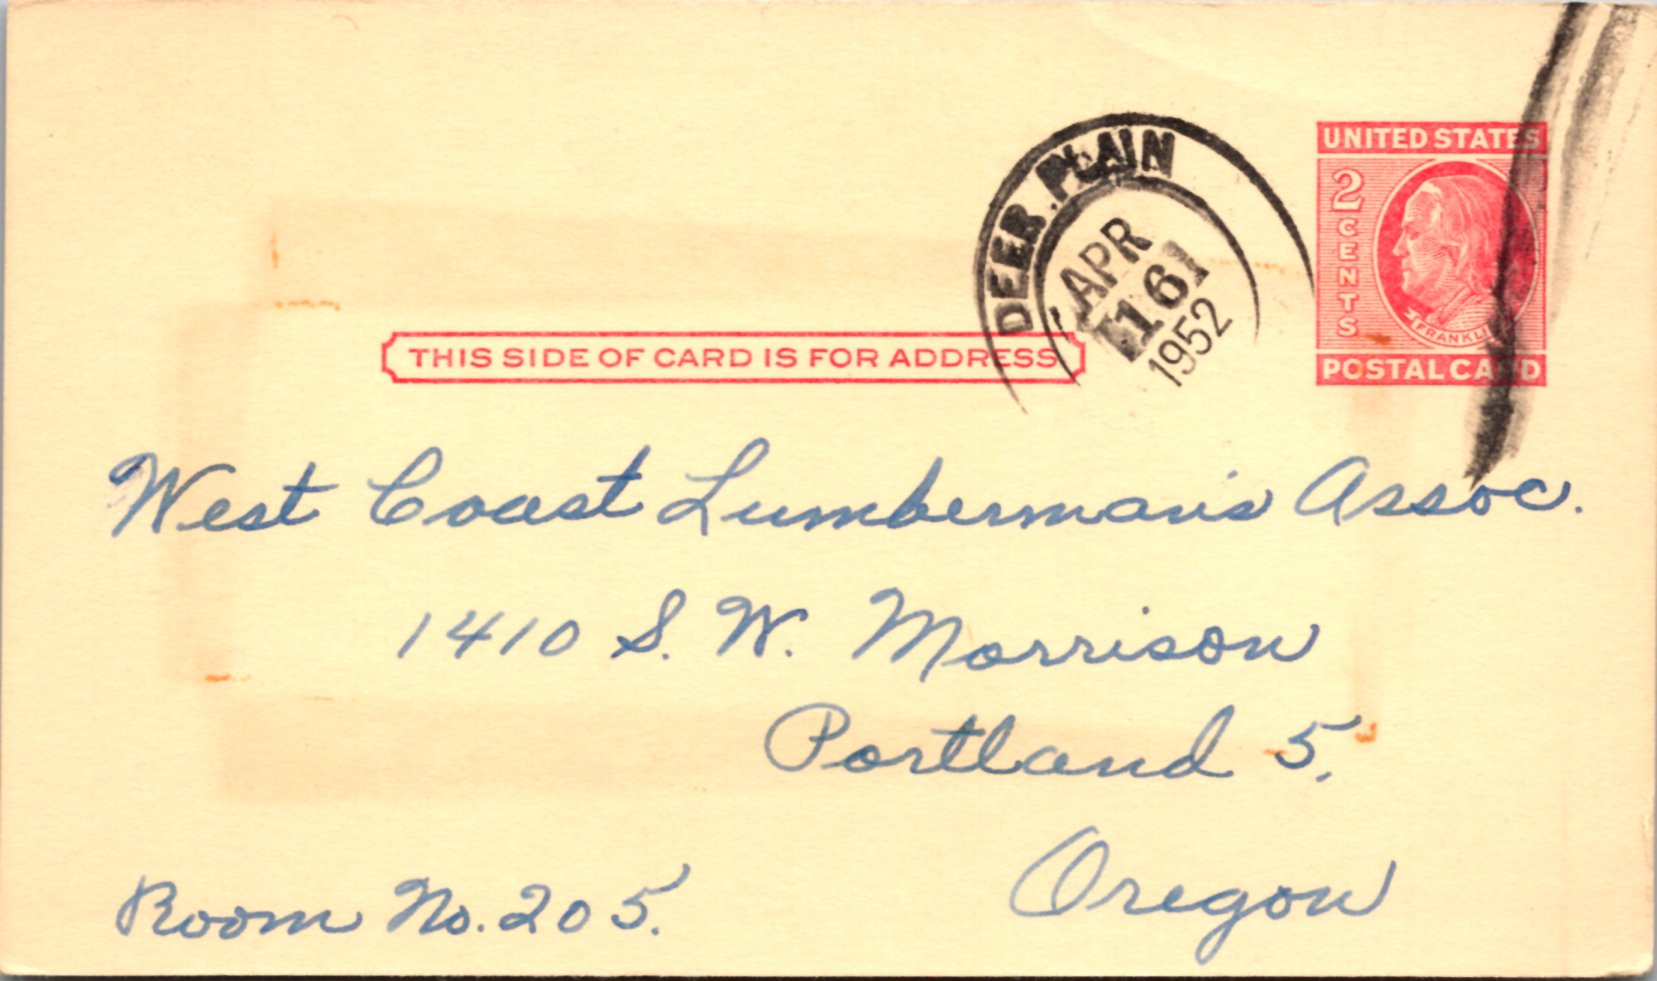 DEER PLAIN
APR
16
1952
UNITED STATES
2
CENTS
FRANKLIN
POSTAL CARD
THIS SIDE OF CARD IS FOR ADDRESS
West Coast Lumberman's Assoc.
1410 S. W. Morrison
Portland 5,
Oregon
Room No. 205.